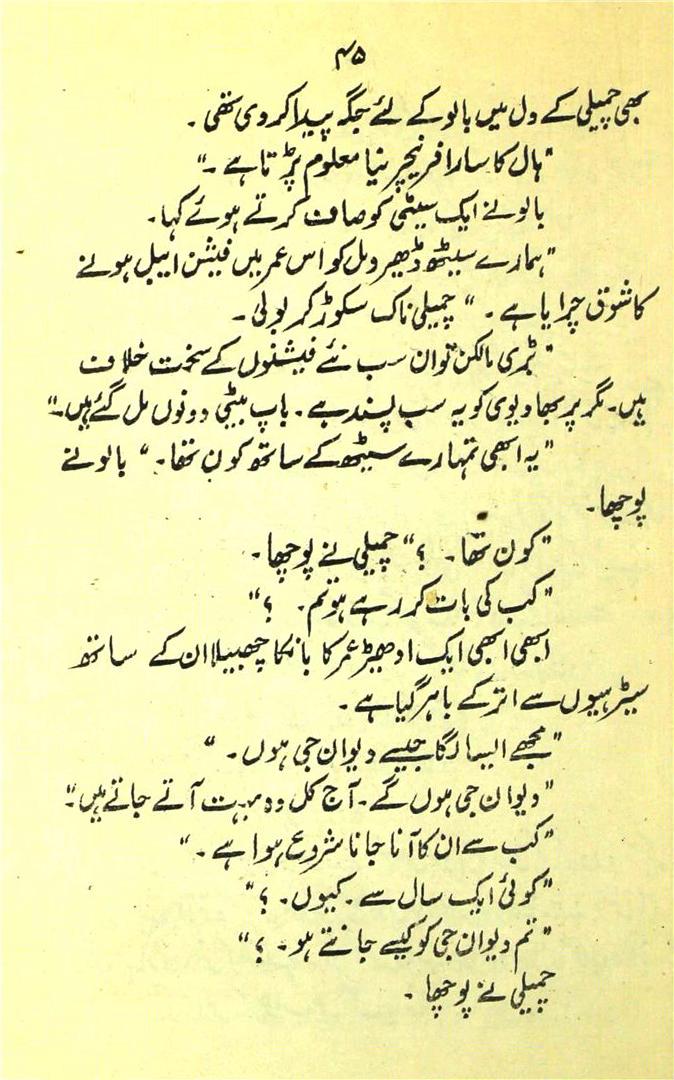 ۴۵
بھی چمیلی کے دل میں بالو کے لئے جگہ پیدا کر دی تھی ۔
"ہال کا سارا فرنیچر نیا معلوم پڑتا ہے ۔"
بالو نے ایک سیٹی کو صاف کرتے ہوئے کہا۔
"ہمارے سیٹھ ڈھیرومل کو اس عمر میں فیشن ایبل ہونے
کا شوق چرایا ہے ۔" چمیلی ناک سکوڑ کر بولی ۔
"بڑی مالکن تو ان سب نئے فیشنوں کے سخت خلاف
ہیں۔ مگر پربھا دیوی کو یہ سب پسند ہے ۔ باپ بیٹی دونوں مل گئے ہیں۔"
"یہ ابھی تمہارے سیٹھ کے ساتھ کون تھا۔" بالو نے
پوچھا۔
"کون تھا۔ ؟" چمیلی نے پوچھا۔
"کب کی بات کر رہے ہو تم۔ ؟"
ابھی ابھی ایک ادھیڑ عمر کا بانکا چھبیلا ان کے ساتھ
سیڑہیوں سے اتر کے باہر گیا ہے ۔
"مجھے ایسا لگا جیسے دیوان جی ہوں۔"
"دیوان جی ہوں گے۔ آج کل وہ بہت آتے جاتے ہیں۔"
"کب سے ان کا آنا جانا شروع ہوا ہے ۔"
"کوئی ایک سال سے ۔ کیوں۔ ؟"
"تم دیوان جی کو کیسے جانتے ہو۔ ؟"
چمیلی نے پوچھا ۔